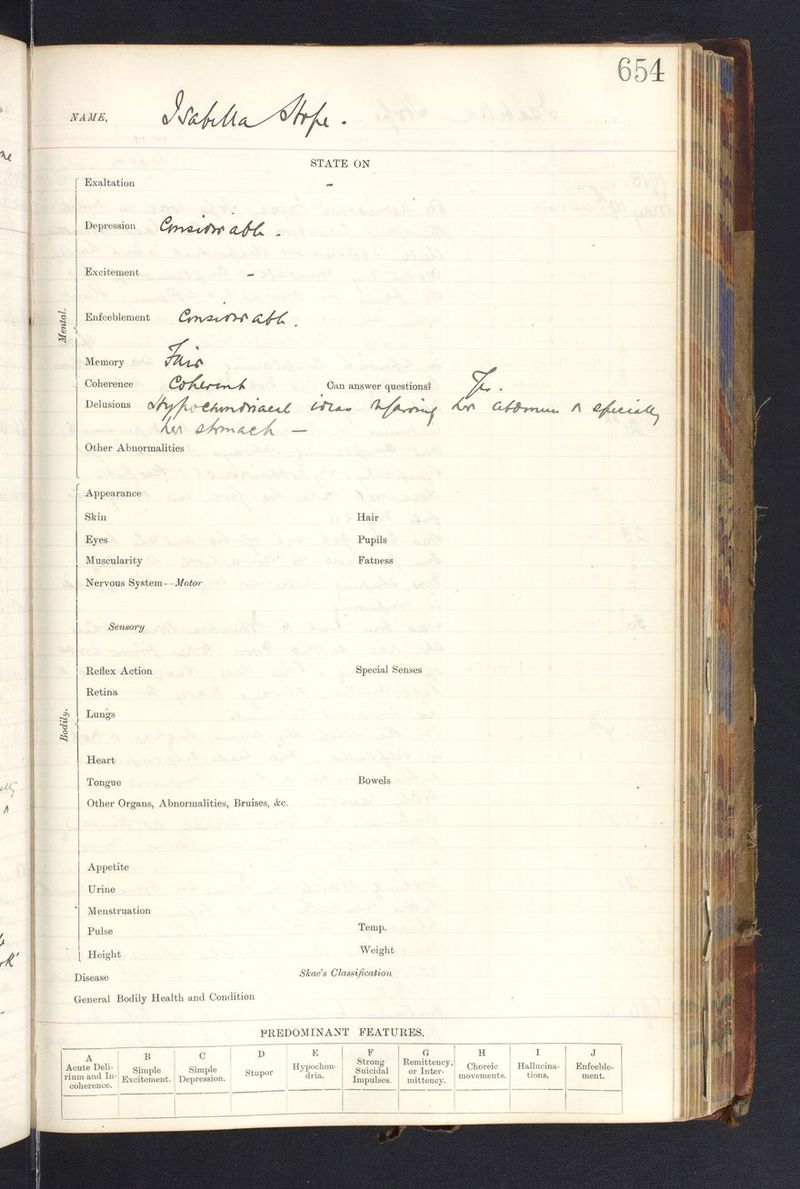 654
NAME, Isabella Hope.
STATE ON
Exaltation -
Depression Considerable.
Excitement -
Mental.
Enfeeblement Considerable.
Memory Fair
Coherence Coherent Can answer questions? Yes.
Delusions Hypochondriacal ideas regarding her abdomen & specially
her stomach —
Other Abnormalities
Appearance
Skin Hair
Eyes Pupils
Muscularity Fatness
Nervous System—Motor
Sensory
Reflex Action Special Senses
Retina
Bodily.
Lungs
Heart
Tongue Bowels
Other Organs, Abnormalities, Bruises, &c.
Appetite
Urine
Menstruation
Pulse Temp.
Height Weight
Disease Skae's Classification
General Bodily Health and Condition
PREDOMINANT FEATURES.
A B C D E F G H I J
Acute Deli-
rium and In-
coherence.
Simple
Excitement.
Simple
Depression.
Stupor
Hypochon-
dria.
Strong
Suicidal
Impulses.
Remittency,
or Inter-
mittency.
Choreic
movements.
Hallucina-
tions.
Enfeeble-
ment.